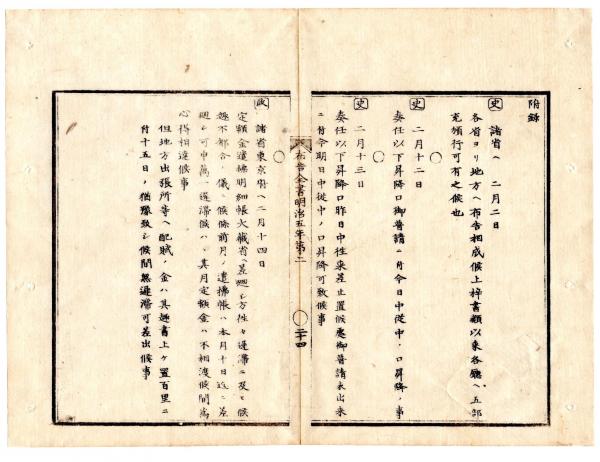 附錄
史 諸省ヘ 二月二日
各省ヨリ地方ヘ布告相成候上梓書類以来各廳ヘ五部
充頒行可有之候也
○
史 二月十二日
奏任以下昇降口御普請ニ付今日中従中ノ口昇降ノ事
○
史 二月十三日
奏任以下昇降口昨日中往来差止置候處御普請未出来
ニ付今明日中従中ノ口昇降可致候事
布告全書明治五年第二
○二十四
政 諸省東京府ヘ二月十四日
定額金遣拂明細帳大藏省ヘ差廻シ方往々遅滞ニ及ヒ候
趣不都合ノ儀ニ候條前月ノ遣拂帳ハ本月十日迄ニ差
廻シ可申萬一遅滞候ハヽ其月定額金ハ不相渡候間為
心得相達候事
但地方出張所等ヘ配賦ノ金ハ其趣書上ケ置百里ニ
付十五日ノ猶豫致シ候間無遅滞可差出候事